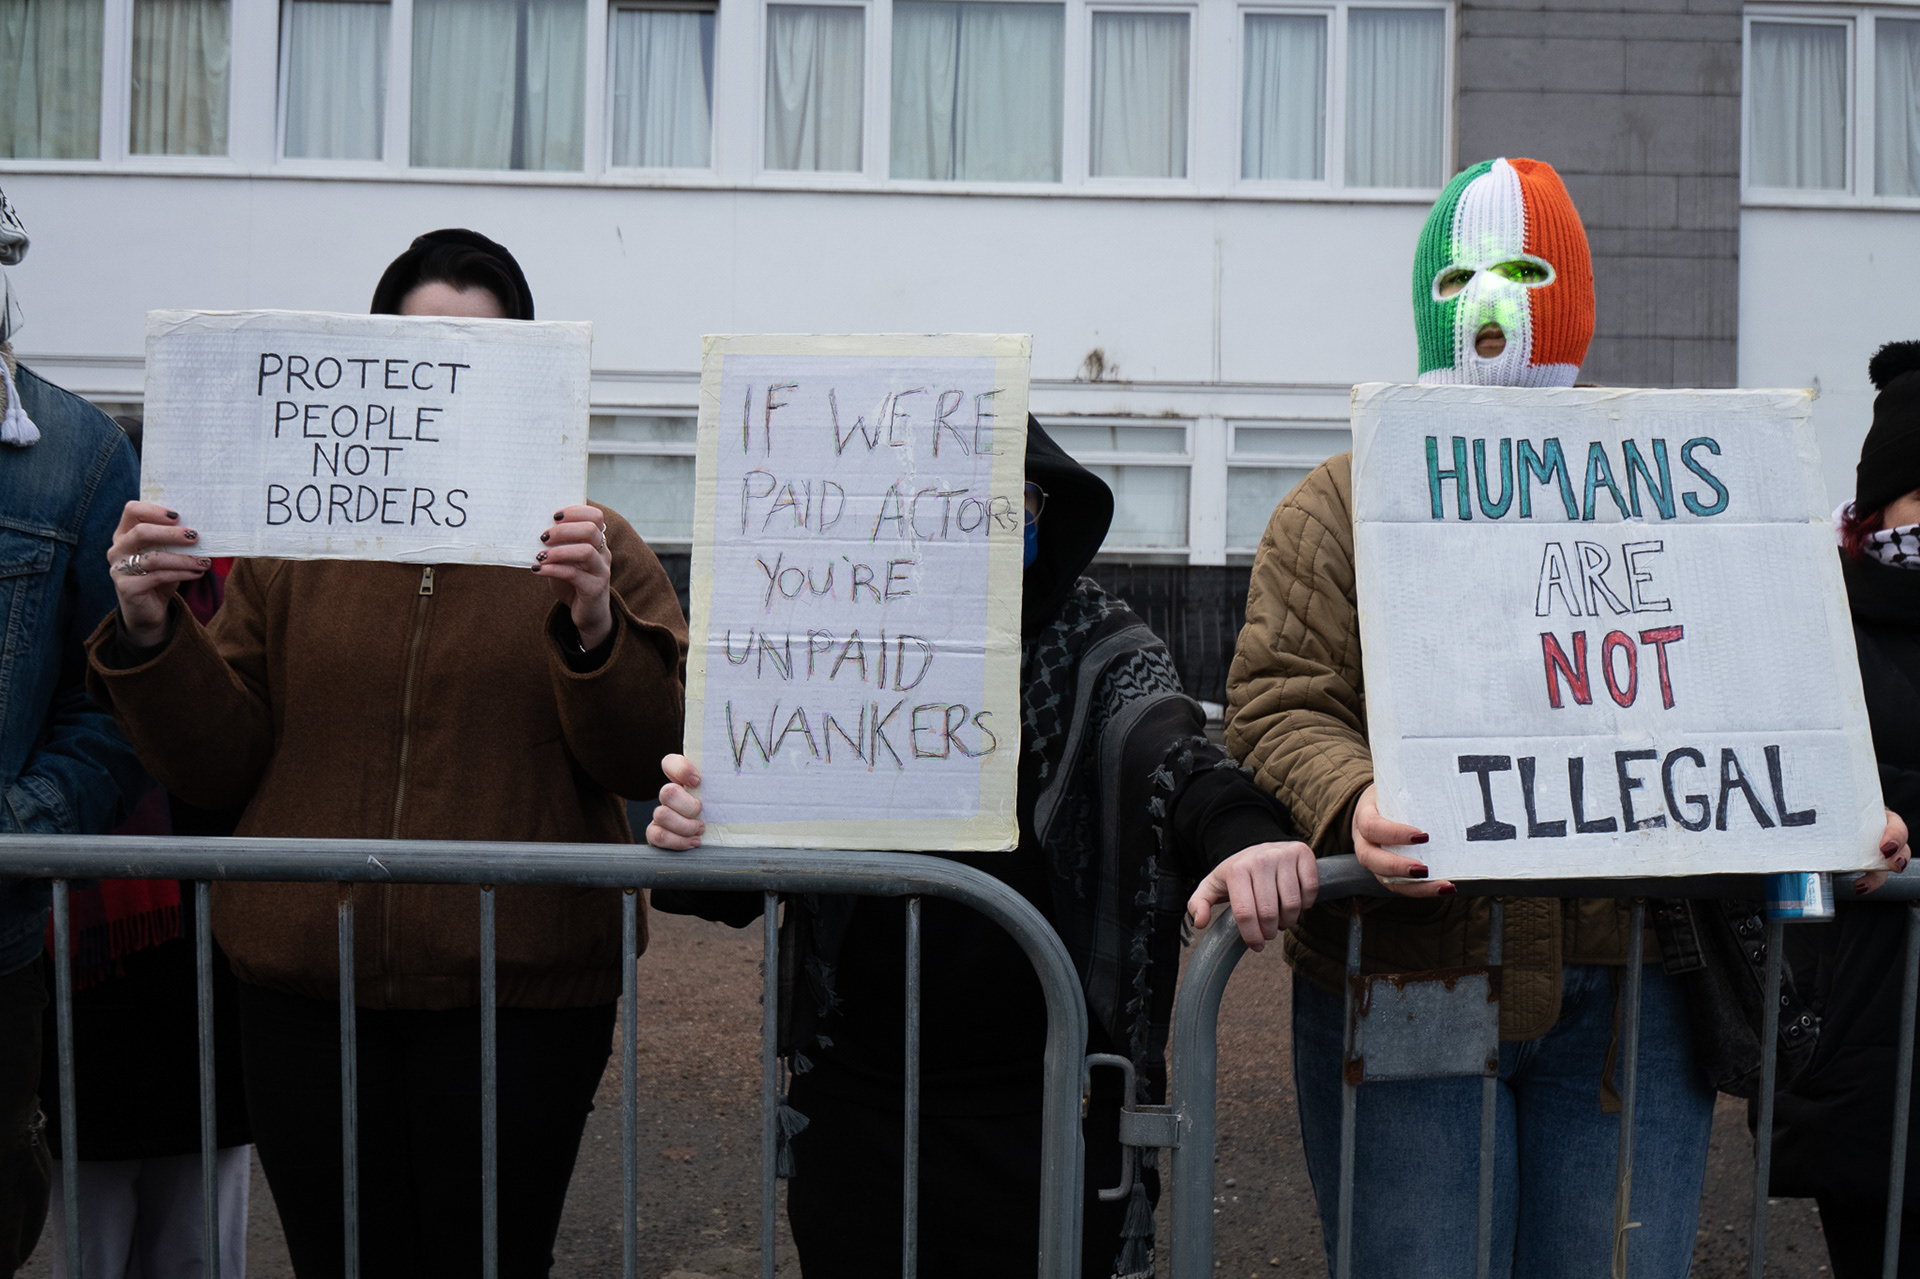 PROTECT
PEOPLE
NOT
BORDERS
IF WE'RE
PAID ACTORS
YOU'RE
UNPAID
WANKERS
HUMANS
ARE
NOT
ILLEGAL